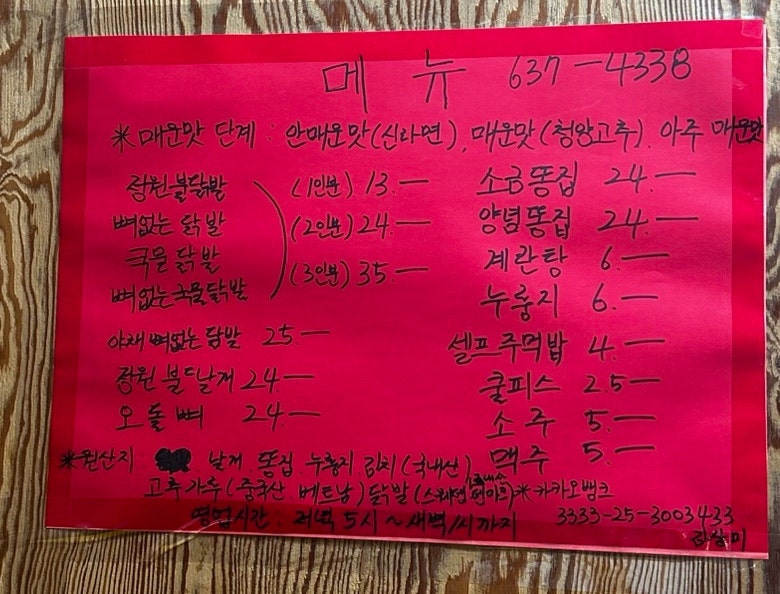 메뉴 637-4338
※매운맛 단계 : 안매운맛(신라면), 매운맛(청양고추), 아주 매운맛
장원불닭발 (1인분) 13.—
뼈없는 닭발 (2인분) 24.—
국물닭발
뼈없는국물닭발 (3인분) 35.—
야채뼈없는닭발 25—
장원불날개 24.—
오돌뼈 24.—
소금똥집 24.—
양념똥집 24.—
계란탕 6.—
누룽지 6.—
셀프주먹밥 4.—
쿨피스 2.5—
소주 5.—
맥주 5.—
※원산지 날개 똥집 누룽지 김치(국내산)
고추가루(중국산 베트남) 닭발(스웨덴 덴마크) ※카카오뱅크
영업시간 저녁 5시~새벽1시까지 3333-25-3003433